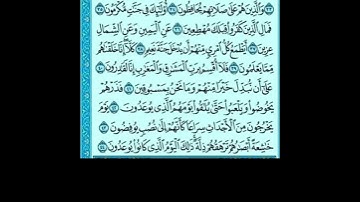 ﴿٣٣﴾ وَالَّذِينَ هُمْ عَلَىٰ صَلَاتِهِمْ يُحَافِظُونَ ﴿٣٤﴾ أُولَٰئِكَ فِي جَنَّاتٍ مُكْرَمُونَ ﴿٣٥﴾
فَمَالِ الَّذِينَ كَفَرُوا قِبَلَكَ مُهْطِعِينَ ﴿٣٦﴾ عَنِ الْيَمِينِ وَعَنِ الشِّمَالِ
عِزِينَ ﴿٣٧﴾ أَيَطْمَعُ كُلُّ امْرِئٍ مِنْهُمْ أَنْ يُدْخَلَ جَنَّةَ نَعِيمٍ ﴿٣٨﴾ كَلَّا إِنَّا خَلَقْنَاهُمْ
مِمَّا يَعْلَمُونَ ﴿٣٩﴾ فَلَا أُقْسِمُ بِرَبِّ الْمَشَارِقِ وَالْمَغَارِبِ إِنَّا لَقَادِرُونَ ﴿٤٠﴾
عَلَىٰ أَنْ نُبَدِّلَ خَيْرًا مِنْهُمْ وَمَا نَحْنُ بِمَسْبُوقِينَ ﴿٤١﴾ فَذَرْهُمْ
يَخُوضُوا وَيَلْعَبُوا حَتَّىٰ يُلَاقُوا يَوْمَهُمُ الَّذِي يُوعَدُونَ ﴿٤٢﴾ يَوْمَ
يَخْرُجُونَ مِنَ الْأَجْدَاثِ سِرَاعًا كَأَنَّهُمْ إِلَىٰ نُصُبٍ يُوفِضُونَ ﴿٤٣﴾
خَاشِعَةً أَبْصَارُهُمْ تَرْهَقُهُمْ ذِلَّةٌ ذَٰلِكَ الْيَوْمُ الَّذِي كَانُوا يُوعَدُونَ ﴿٤٤﴾